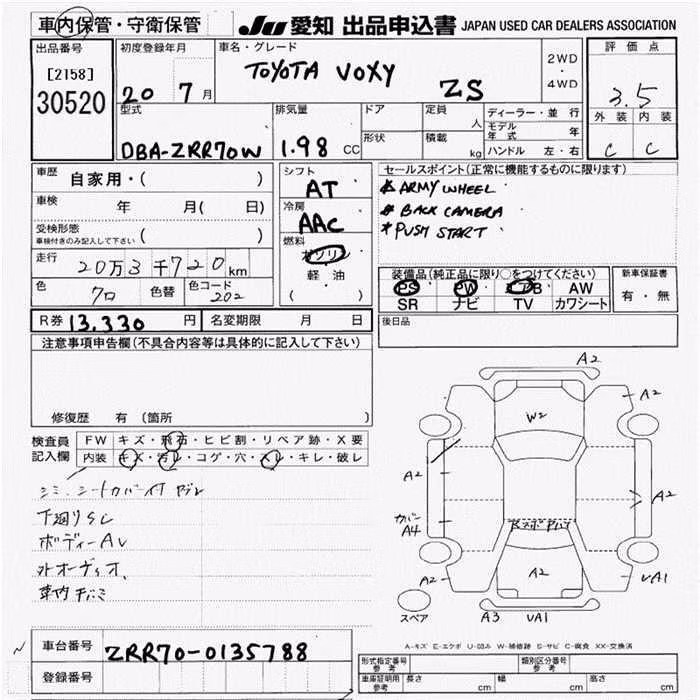 車内保管・守衛保管 JU 愛知 出品申込書 JAPAN USED CAR DEALERS ASSOCIATION
出品番号 初度登録年月 車名・グレード 評価点
[2158] 30520 20 7月 TOYOTA VOXY ZS 2WD・4WD 3.5
型式 排気量 ドア 定員 人 ディーラー・並行 外装 内装
DBA-ZRR70W 1.98 CC 形状 積載 kg モデル年式 年 C C
ハンドル 左・右
車歴 自家用・( ) シフト AT セールスポイント(正常に機能するものに限ります)
車検 年 月( 日) 冷房 AAC * ARMY WHEEL
* BACK CAMERA
受検形態 ( ) 燃料 ガソリン * PUSH START
車検付きのみ記入して下さい
走行 20万3千720km 軽・油 装備品(純正品に限り○をつけてください) 新車保証書
( ) PS PW AB AW 有・無
色 色替 色コード 202 SR ナビ TV カワシート
R券 13,330 円 名変期限 月 日 後日品
注意事項申告欄(不具合内容等は具体的に記入して下さい)
修復歴 有 (箇所 )
検査員 FW キズ・飛石・ヒビ割・リペア跡・X要
記入欄 内装 キズ・汚レ・コゲ・穴・スレ・キレ・破レ
シミ、シートカバー付
下廻りサビ
ボディーAU
外オーディオ、
A2
A2 W2 A2
A2 A2
カバー A4
A2 A2 UA1
スペア A3 UA1
A-キズ E-エクボ U-凹み W-補修跡 S-サビ C-腐食 XX-交換済
車台番号 ZRR70-0135788
登録番号
形式指定番号 参考 類別区分番号 参考
車庫証明用 参考 長さ cm 幅 cm 高さ cm